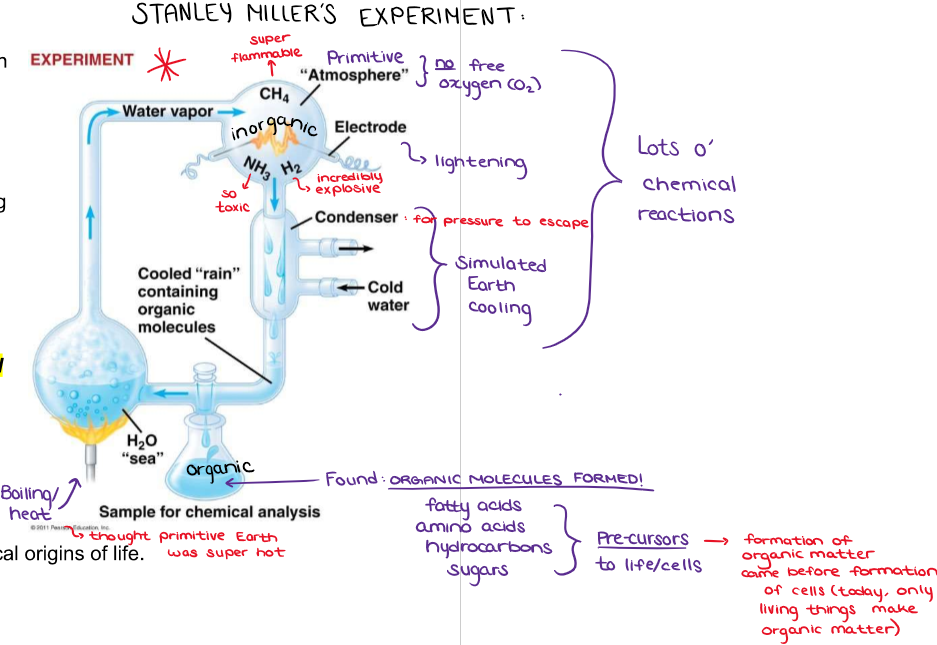 STANLEY MILLER'S EXPERIMENT:
EXPERIMENT
super
flammable
Primitive
"Atmosphere"
no free
oxygen (O₂)
CH₄
Water vapor
inorganic
Electrode
lightening
NH₃ H₂
so
toxic
incredibly
explosive
Lots o'
chemical
reactions
Condenser : for pressure to escape
Simulated
Earth
cooling
Cooled "rain"
containing
organic
molecules
Cold
water
H₂O
"sea"
organic
Boiling/
heat
Sample for chemical analysis
© 2011 Pearson Education, Inc.
thought primitive Earth
was super hot
cal origins of life.
Found: ORGANIC MOLECULES FORMED!
fatty acids
amino acids
hydrocarbons
sugars
Pre-cursors
to life/cells
formation of
organic matter
came before formation
of cells (today, only
living things make
organic matter)